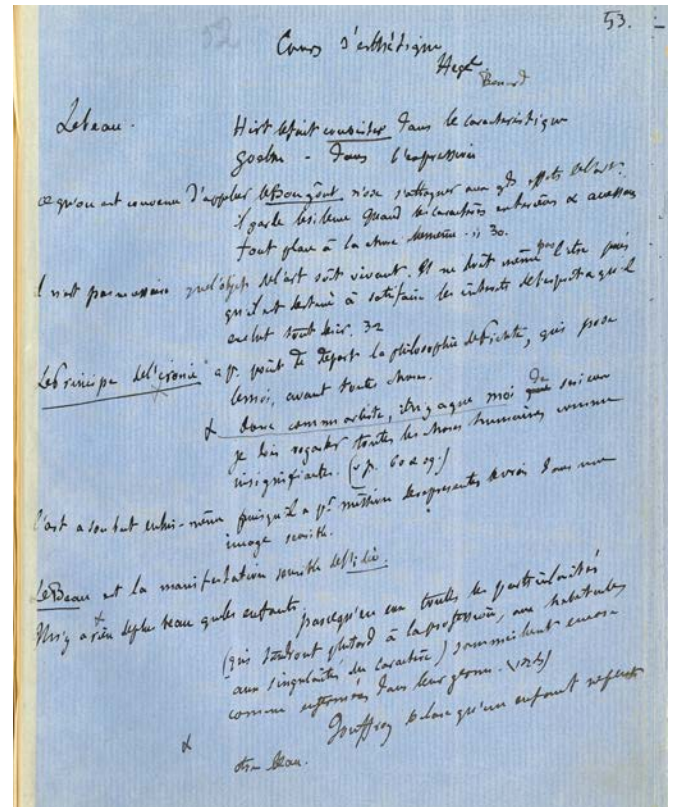 52
53.
Cours d'esthétique
Hegel
Bénard
Le beau. Hirt le fait consister dans le caractéristique
Goethe - dans l'expression
ce qu'on est convenu d'appeler le bon goût n'ose s'attaquer aux gds effets de l'art.
il garde le silence quand les caractères extérieurs & accessoires
font place à la chose elle-même. 30.
il n'est pas nécessaire que l'objet de l'art soit vivant. Il ne doit même pas l'être puis
qu'il est destiné à satisfaire les intérêts de l'esprit & qu'il
exclut tout désir. 32
Le Principe de l'ironie a pr. point de départ la philosophie de Fichte, qui pose
le moi, avant toute chose.
& donc comme artiste, il n'y a que moi de sérieux
je dois regarder toutes les choses humaines comme
insignifiantes. (v p. 60 & sq.)
l'art a son but en lui-même puisqu'il a pr mission de représenter le vrai dans une
image sensible.
Le Beau est la manifestation sensible de l'idée.
Il n'y a rien de plus beau que les enfants.
parce qu'en eux toutes les particularités
(qui tiendront plus tard à la profession, aux habitudes
aux singularités du caractère) sommeillent encore
comme enfermées dans leur germe.
& Jouffroy déclare qu'un enfant ne peut
être beau.